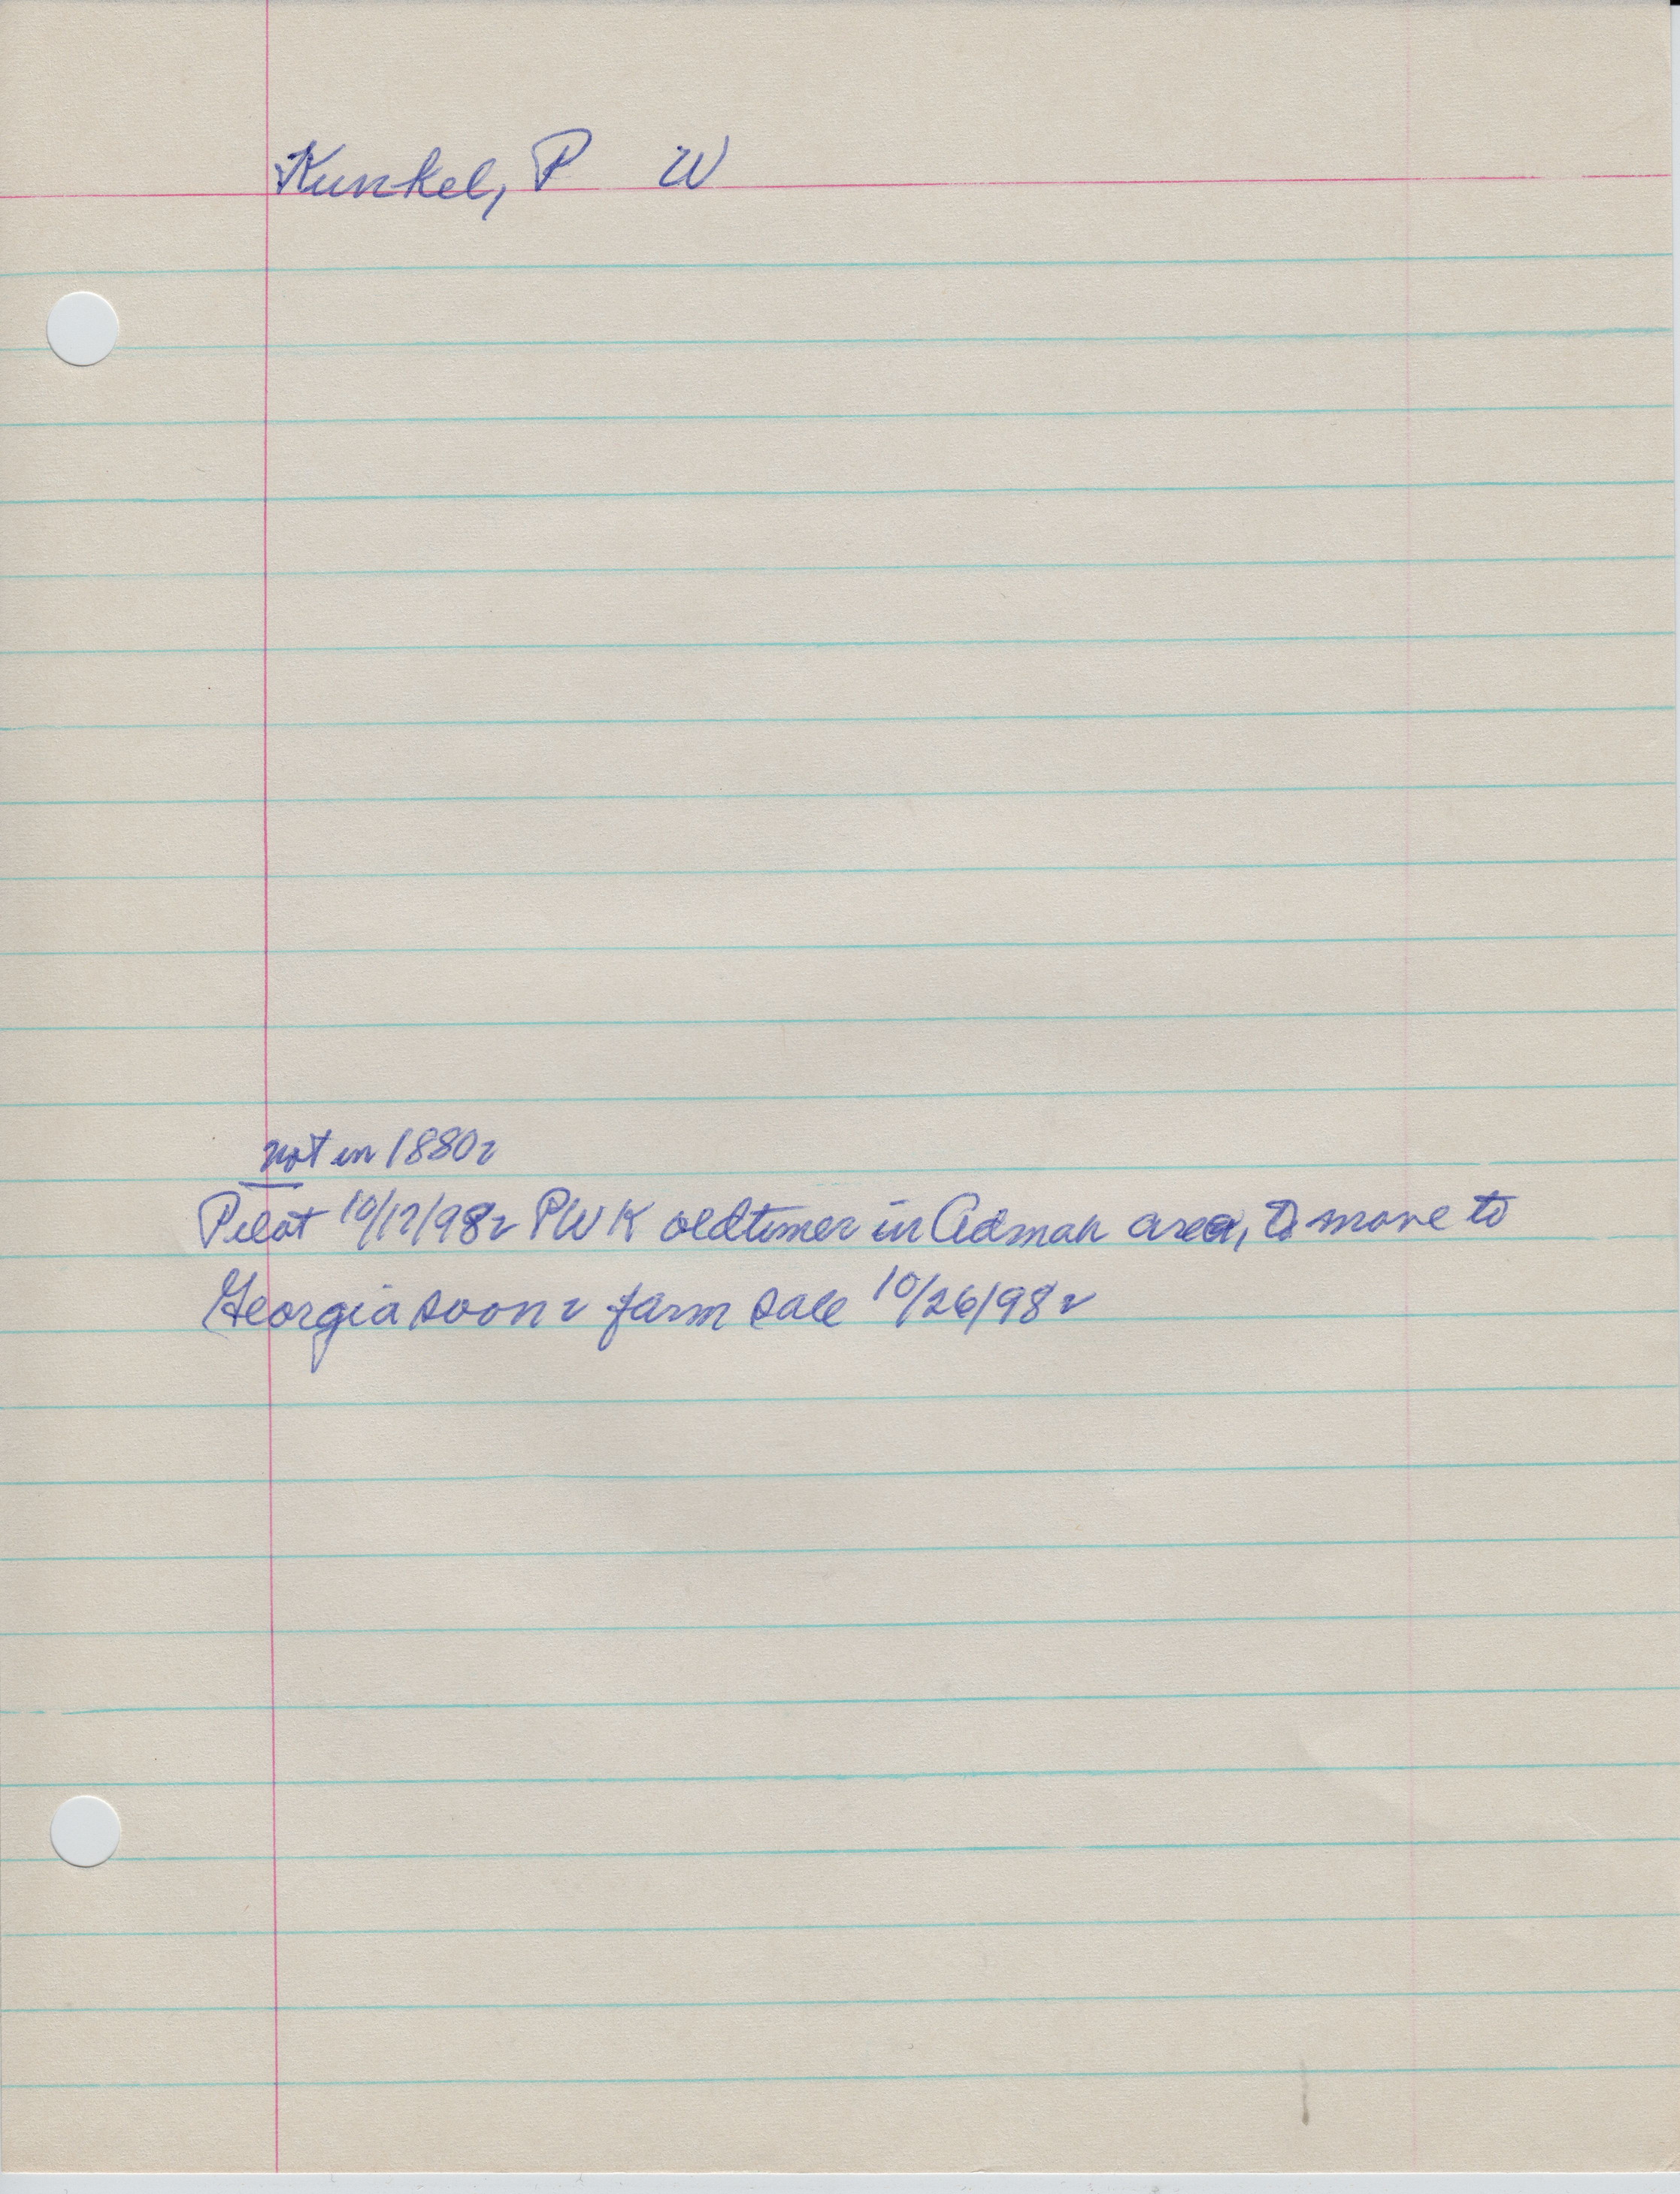 Kunkel, P W
not in 1880r
Pilot 10/12/98r PWK oldtimer in Admah area, to move to
Georgia soon r farm sale 10/26/98r